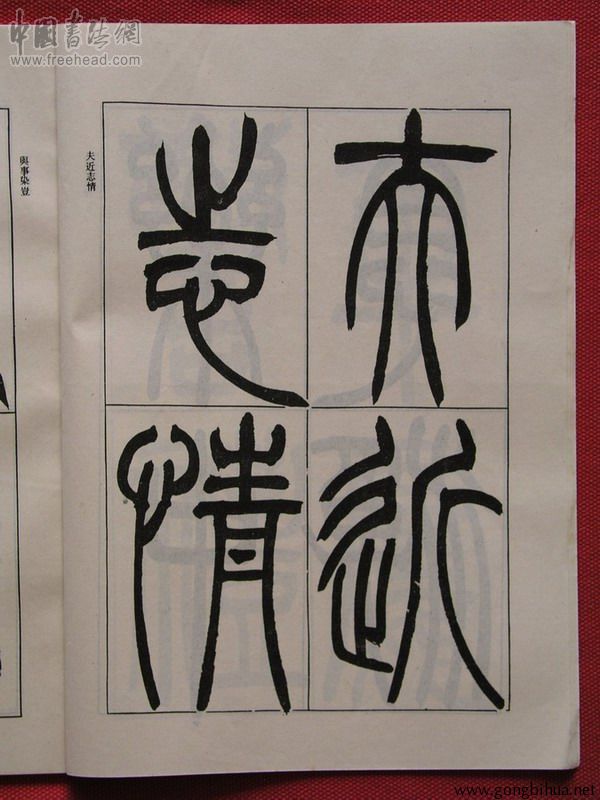 中國書法網
www.freehead.com
夫近
志情
夫近志情
與事染豈
www.gongbihua.net